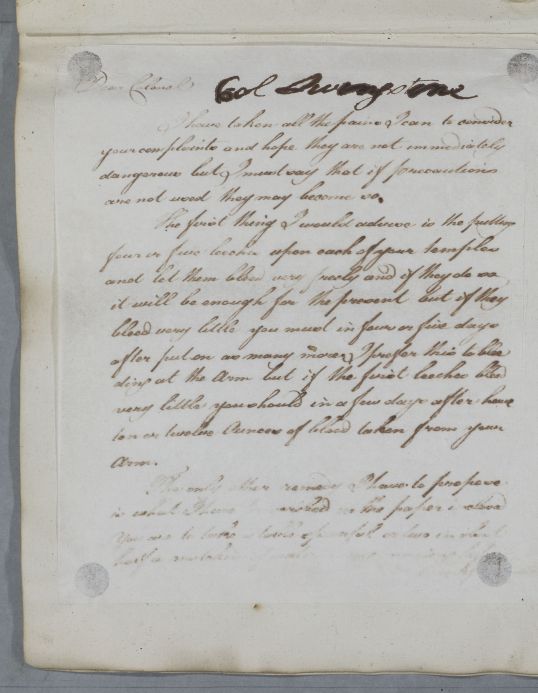 Dear Colonel
Col Livingstone
I have taken all the pains I can to consider
your complaints and hope they are not immediately
dangerous but I must say that if precautions
are not used they may become so.
The first thing I would advise is the putting
four or five leeches upon each of your temples
and let them bleed very freely and if they do so
it will be enough for the present but if they
bleed very little you must in four or five days
after put on as many more, I prefer this to blee
ding at the Arm but if the first leeches bleed
very little you should in a few days after have
ten or twelve Ounces of blood taken from your
Arm.
The only other remedy I have to propose
is what I have in the paper
You are to take a table spoonful or two in
half a